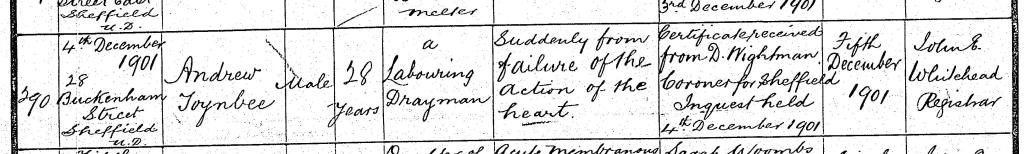 Sheffield
U.D.
melter
3rd December 1901
290
4th December
1901
28
Buckenham
Street
Sheffield
U.D.
Andrew
Toynbee
Male
28
Years
a
Labouring
Drayman
Suddenly from
failure of the
Action of the
heart.
Certificate received
from D. Wightman
Coroner for Sheffield
Inquest held
4th December 1901
Fifth
December
1901
John E.
Whitehead
Registrar
Acute Membranous
Sarah Woombs